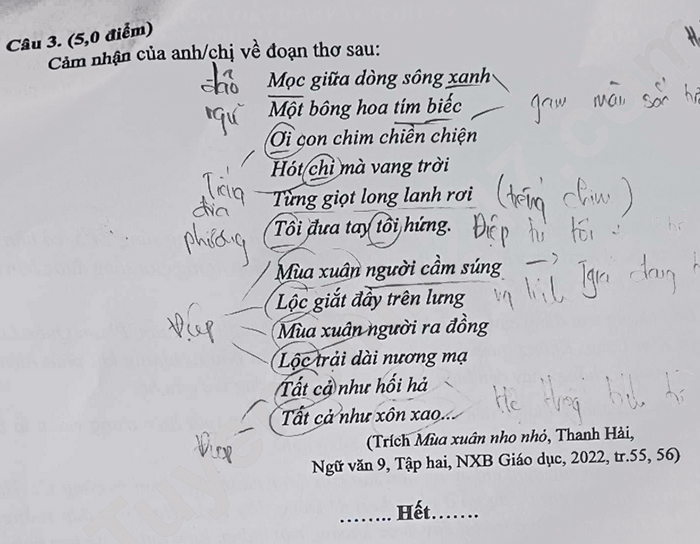 Câu 3. (5,0 điểm)
Cảm nhận của anh/chị về đoạn thơ sau:
đảo ngữ
Mọc giữa dòng sông xanh
Một bông hoa tím biếc
gam màu sắc
Ơi con chim chiền chiện
Hót chi mà vang trời
Tiếng địa phương
Từng giọt long lanh rơi
(tiếng chim)
Tôi đưa tay tôi hứng.
Điệp từ tôi
Mùa xuân người cầm súng
Lộc giắt đầy trên lưng
Điệp
Mùa xuân người ra đồng
Lộc trải dài nương mạ
Tất cả như hối hả
Tất cả như xôn xao...
Điệp
(Trích Mùa xuân nho nhỏ, Thanh Hải,
Ngữ văn 9, Tập hai, NXB Giáo dục, 2022, tr.55, 56)
........ Hết.......